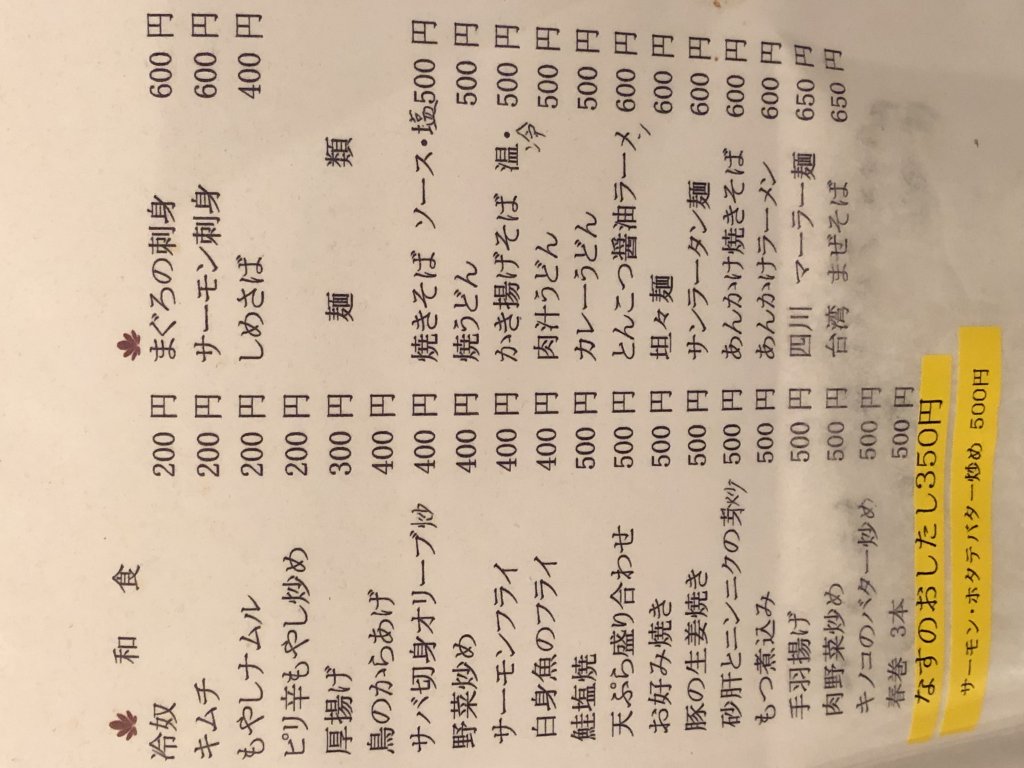 和食
冷奴 200円
キムチ 200円
もやしナムル 200円
ピリ辛もやし炒め 200円
厚揚げ 300円
鳥のからあげ 400円
サバ切身オリーブ炒 400円
野菜炒め 400円
サーモンフライ 400円
白身魚のフライ 400円
鮭塩焼 500円
天ぷら盛り合わせ 500円
お好み焼き 500円
豚の生姜焼き 500円
砂肝とニンニクの芽炒 500円
もつ煮込み 500円
手羽揚げ 500円
肉野菜炒め 500円
キノコのバター炒め 500円
春巻 3本 500円
なすのおしたし350円
サーモン・ホタテバター炒め 500円
まぐろの刺身 600円
サーモン刺身 600円
しめさば 400円
麺類
焼きそば ソース・塩500円
焼うどん 500円
かき揚げそば 温・冷 500円
肉汁うどん 500円
カレーうどん 500円
とんこつ醤油ラーメン 600円
坦々麺 600円
サンラータン麺 600円
あんかけ焼きそば 600円
あんかけラーメン 600円
四川 マーラー麺 650円
台湾 まぜそば 650円